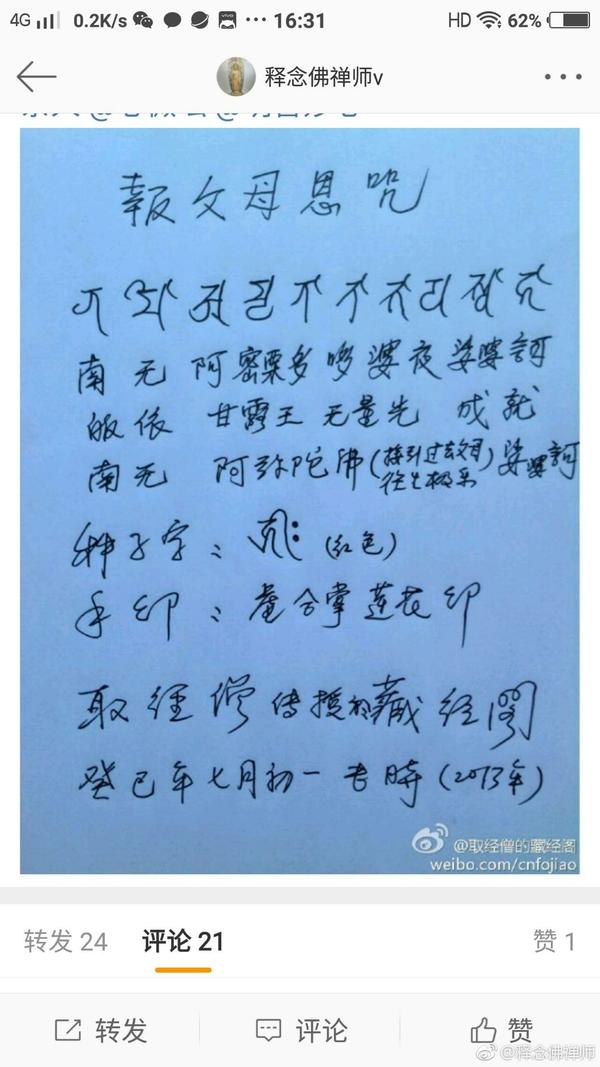 4G 0.2K/s ··· 16:31 HD 62%
释念佛禅师v
報父母恩咒
南无 阿密栗多 哆婆夜 娑婆訶
皈依 甘露王 无量光 成就
南无 阿弥陀佛(接引过去父母往生极乐)娑婆訶
种子字: (红色)
手印: 虚合掌莲花印
取经僧传授於藏经阁
癸巳年七月初一吉時(2013年)
@取经僧的藏经阁
weibo.com/cnfojiao
转发 24 评论 21 赞 1
转发 评论 赞
@释念佛禅师